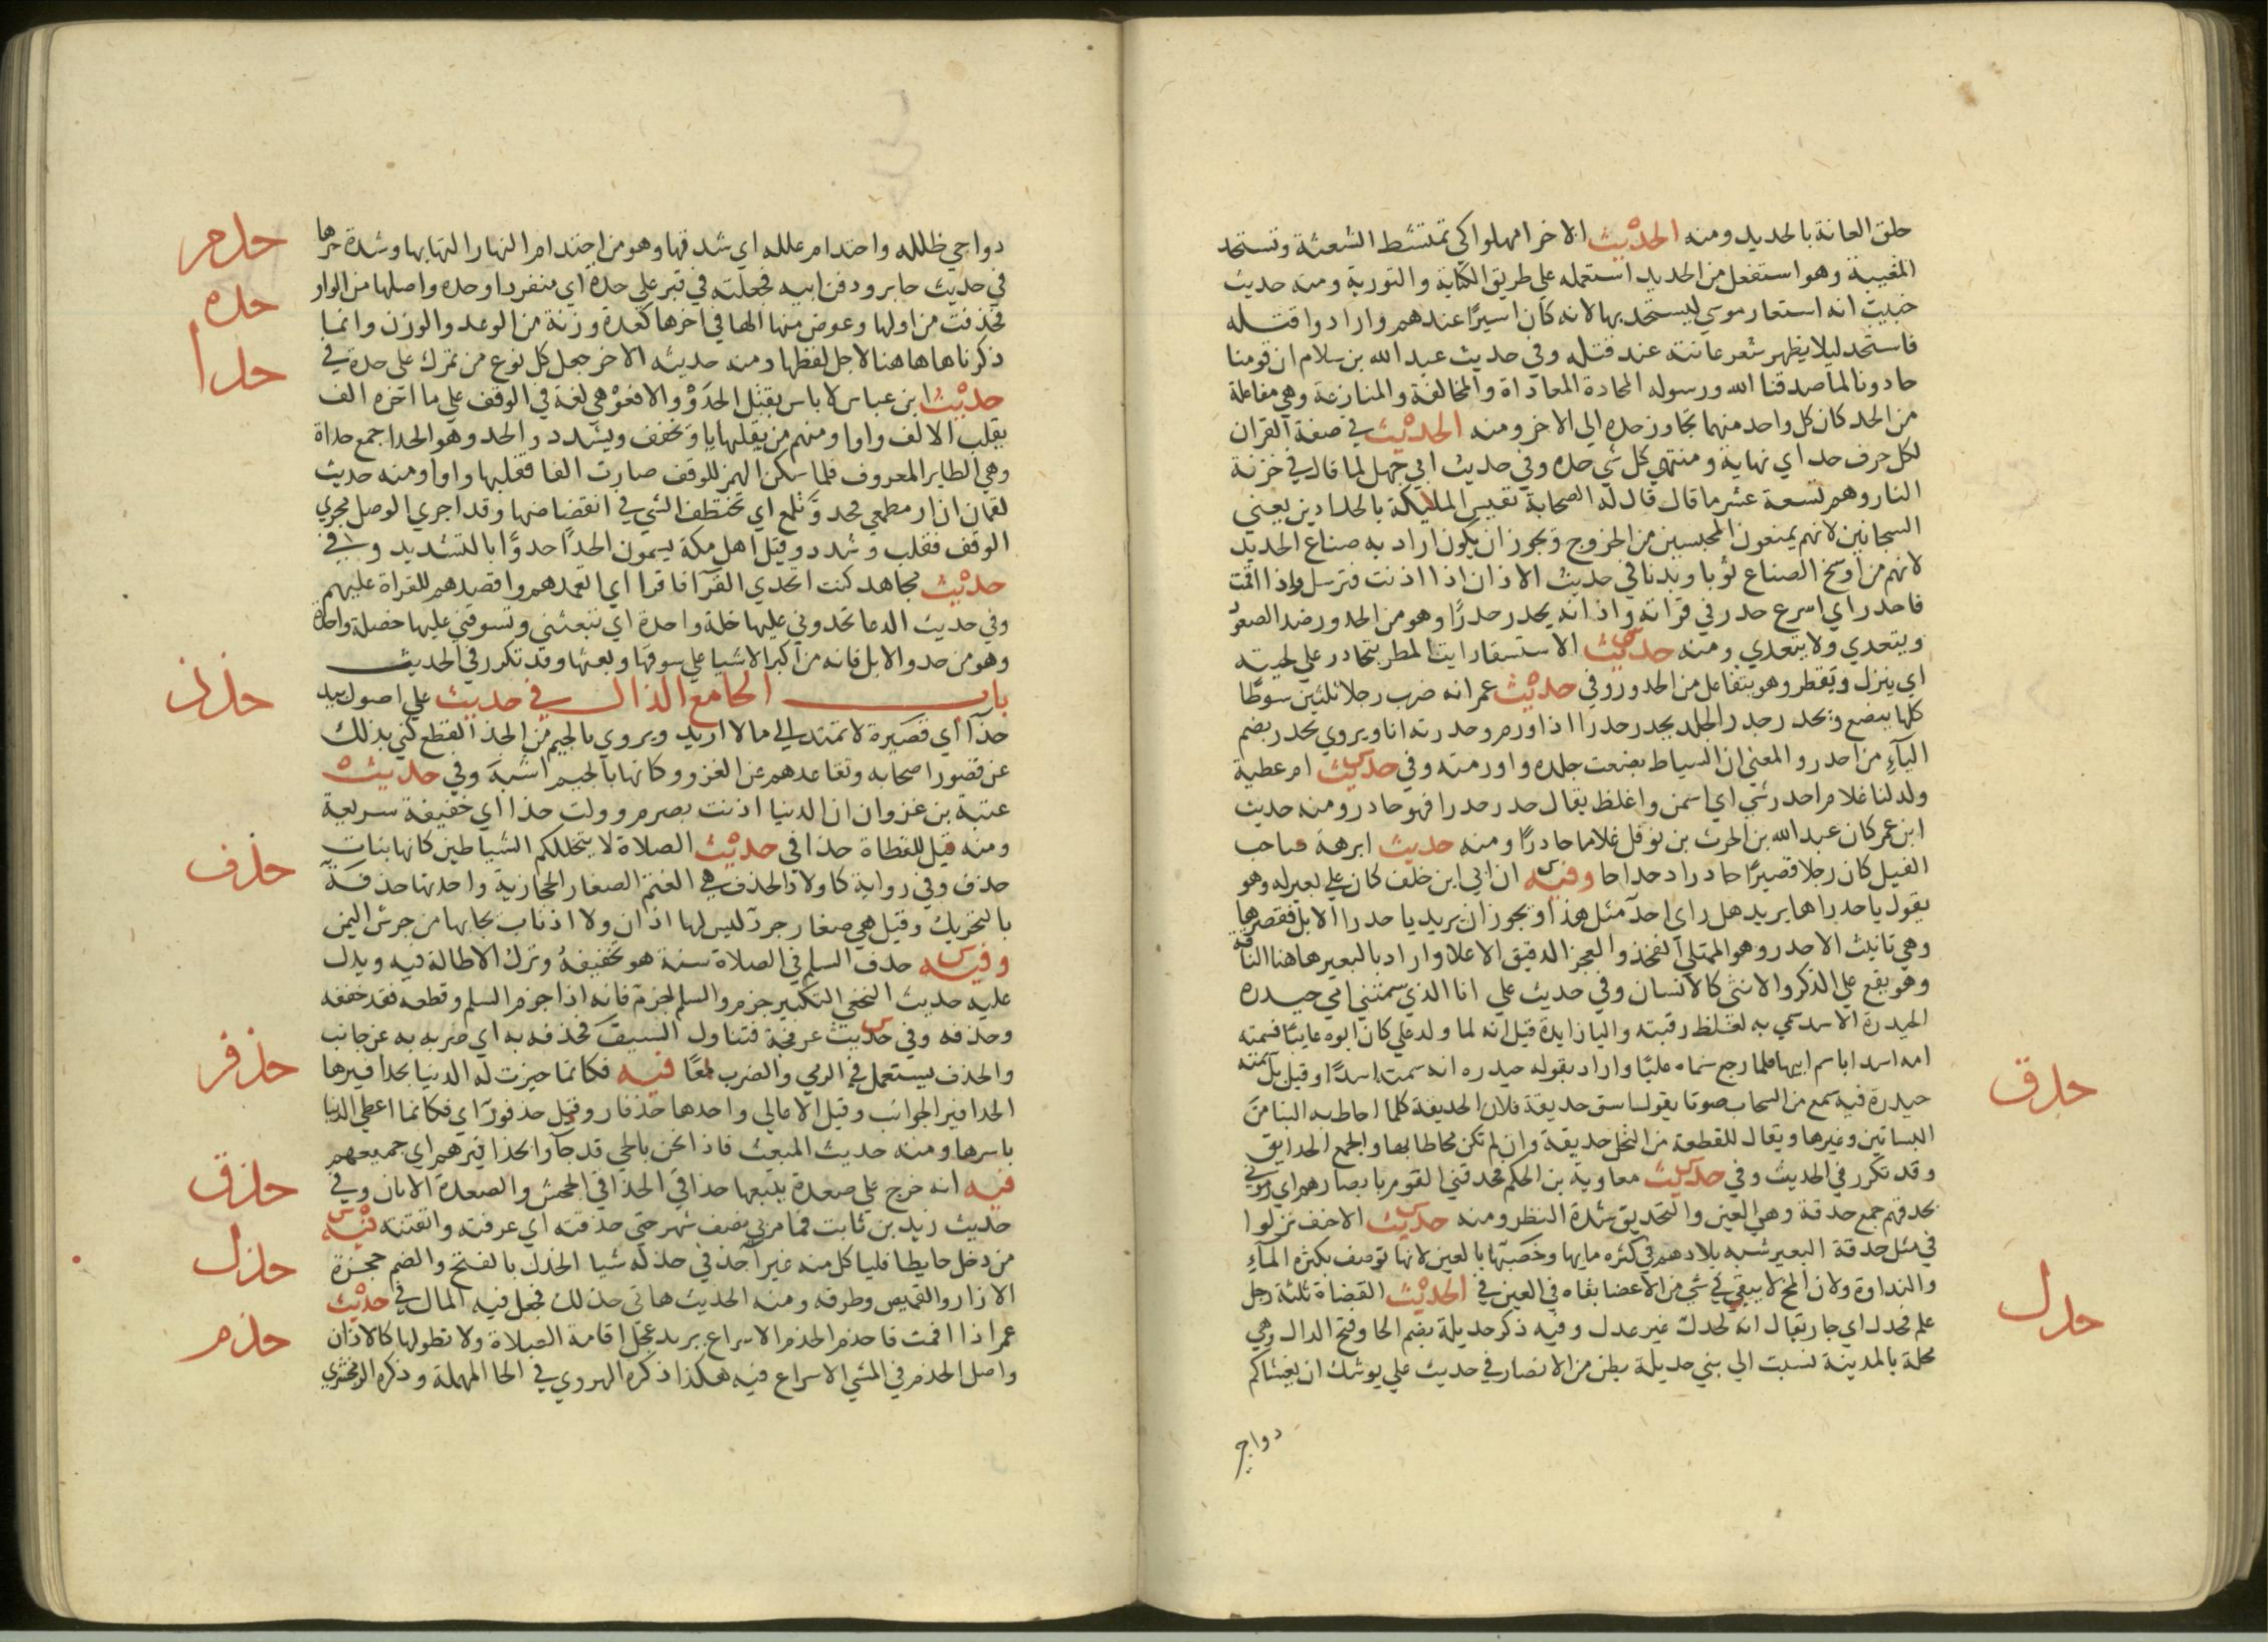 حلق العانة بالحديد ومنه الحديث الاخر امهلوا كي تمتشط الشعثة وتستحد
المغيبة وهو استفعل من الحديد استعمله علي طريق الكناية والتورية ومنه حديث
خبيب انه استعار موسي ليستحد بها لانه كان اسيرًا عندهم وارادوا قتله
فاستحد ليلا يظهر شعر عانته عند قتله وفي حديث عبد الله بن سلام ان قومنا
حادونا لما صدقنا الله ورسوله المحادة المعاداة والمخالفة والمنازعة وهي مفاعلة
من الحد كان كل واحد منهما تجاوز حده الي الاخر ومنه الحديث في صفة القران
لكل حرف حد اي نهاية ومنتهي كل شي حده وفي حديث ابي جهل لما قال في خزنة
النار وهم تسعة عشر ما قال قال له الصحابة تقيس المليكة بالحدادين يعني
السجانين لانهم يمنعون المحبسين من الخروج ويجوز ان يكون اراد به صناع الحديد
لانهم من اوسخ الصناع ثوبا وبدنا في حديث الاذان اذا اذنت فترسل واذا اقمت
فاحدر اي اسرع حدر في قراته واذانه يحدر حدرًا وهو من الحدور ضد الصعود
ويتعدي ولا يتعدي ومنه حديث الاستسقا رايت المطر يتحادر علي لحيته
اي ينزل ويقطر وهو يتفاعل من الحدور وفي حديث عمر انه ضرب رجلا ثلثين سوطًا
كلها يبضع ويحدر حدر الجلد يحدر حدرا اذا ورم وحدرته انا ويروي يحدر بضم
الياء من احدر والمعني ان السياط بضعت جلده واورمته وفي حديث ام عطية
ولد لنا غلام احدر شي اي اسمن واغلظ يقال حدر حدرا فهو حادر ومنه حديث
ابن عمر كان عبد الله بن الحرث بن نوفل غلاما حادرًا ومنه حديث ابرهة صاحب
الفيل كان رجلا قصيرًا حادرا دحداحا وفيه ان ابي ابن خلف كان علي بعير له وهو
يقول يا حدراها يريد هل راي احد مثل هذا ويجوز ان يريد يا حدرا الابل فقصرها
وهي تانيث الاحدر وهو الممتلي الفخذ والعجز الدقيق الاعلا واراد بالبعير هاهنا الناقة
وهو يقع علي الذكر والانثي كالانسان وفي حديث علي انا الذي سمتني امي حيدره
الحيدرة الاسد سمي به لغلظ رقبته واليا زايدة قيل انه لما ولد علي كان ابوه غايبًا فسمته
امه اسدا باسم ابيها فلما رجع سماه عليًا واراد بقوله حيدره انه سمته اسدًا وقيل بل سمته
حيدرة فيه سمع من السحاب صوتا يقول اسق حديقة فلان الحديقة كلما احاط به البنا من
البساتين وغيرها ويقال للقطعة من النخل حديقة وان لم تكن محاطا بها والجمع الحدايق
وقد تكرر في الحديث وفي حديث معاوية بن الحكم فحدقني القوم بابصارهم اي رموني
بحدقهم جمع حدقة وهي العين والتحديق شدة النظر ومنه حديث الاحنف نزلوا
في مثل حدقة البعير شبه بلادهم في كثره مايها وخصبها بالعين لانها توصف بكثرة الماء
والنداوة ولان المخ لا يبقي في شي من الاعضا بقاه في العين في الحديث القضاة ثلثة رجل
علم فحدل اي جار يقال انه لحدل غير عدل وفيه ذكر حديلة بضم الحا وفتح الدال وهي
محلة بالمدينة نسبت الي بني حديلة بطن من الانصار في حديث علي يوشك ان يغشاكم
دواجي
حدق
حدل
دواجي ظلله واحتدام علله اي شدتها وهو من احتدام النهار التهابها وشدة حرها
في حديث جابر ودفن ابيه فجعلته في قبر علي حدة اي منفردا وحده واصلها من الواو
فحذفت من اولها وعوض منها الها في اخرها كعدة وزنة من الوعد والوزن وانما
ذكرناها هاهنا لاجل لفظها ومنه حديثه الاخر جعل كل نوع من تمرك علي حدة في
حديث ابن عباس لا باس بقتل الحدَوْ والافعَوْ هي لغة في الوقف علي ما اخره الف
بقلب الالف واوا ومنهم من يقلبها يا وتخفف ويشدد والحدو هو الحدا جمع حداة
وهي الطاير المعروف فلما سكن الهمز للوقف صارت الفا فقلبها واوا ومنه حديث
لقمان ان ار مطمعي فحدو تلمع اي تختطف الشي في انقضاضها وقد اجري الوصل مجري
الوقف فقلب وشدد وقيل اهل مكة يسمون الحدا حدوًا بالتشديد وفي
حديث مجاهد كنت اتحدي القرا فاقرا اي اتعمدهم واقصدهم للقراة عليهم
وفي حديث الدعا تحدوني عليها خلة واحدة اي تبعثني وتسوقني عليها خصلة واحدة
وهو من حدو الابل فانه من اكبر الاشيا علي سوقها وبعثها وقد تكرر في الحديث
باب الحا مع الذال في حديث علي اصول بيد
حذا اي قصيرة لا تمتد الي ما لا اريد ويروي بالجيم من الجذ القطع كني بذلك
عن قصور اصحابه وتقاعدهم عن الغزو وكانها بالجيم اشبه وفي حديث
عتبة بن غزوان ان الدنيا اذنت بصرم وولت حذا اي خفيفة سريعة
ومنه قيل للقطاة حذا في حديث الصلاة لا يتخللكم الشياطين كانها بنات
حذف وفي رواية كاولاد الحذف هي الغنم الصغار الحجازية واحدتها حذفة
بالتحريك وقيل هي صغار جرد ليس لها اذان ولا اذناب يجا بها من جرش اليمن
وفيه حذف السلم في الصلاة سنة هو تخفيفه وترك الاطالة فيه ويدل
عليه حديث النخعي التكبير جزم والسلم جزم فانه اذا جزم السلم وقطعه فقد خففه
وحذفه وفي حديث عرفجة فتناول السيف فحذفه به اي ضربه به عن جانب
والحذف يستعمل في الرمي والضرب معًا فيه فكانما حيزت له الدنيا بحذافيرها
الحذافير الجوانب وقيل الاعالي واحدها حذفار وقيل حذفور اي فكانما اعطي الدنيا
باسرها ومنه حديث المبعث فاذا نحن بالحي قد جآوا بحذافيرهم اي جميعهم
فيه انه خرج علي صعدة يتبعها حذاقي الحذاقي الجحش والصعدة الاتان وفي
حديث زيد بن ثابت فما مر بي نصف شهر حتي حذقته اي عرفته واتقنته فيه
من دخل حايطا فلياكل منه غير اخذ في حذله شيا الحذل بالفتح والضم حجزة
الازار والقميص وطرفه ومنه الحديث هاتي حذلك فجعل فيه المال في حديث
عمر اذا اقمت فاحذم الحذم الاسراع يريد عجل اقامة الصلاة ولا تطولها كالاذان
واصل الحذم في المشي الاسراع فيه هكذا ذكره الهروي في الحا المهملة وذكره الزمخشري
حدم
حده
حدا
حذذ
حذف
حذفر
حذق
حذل
حذم